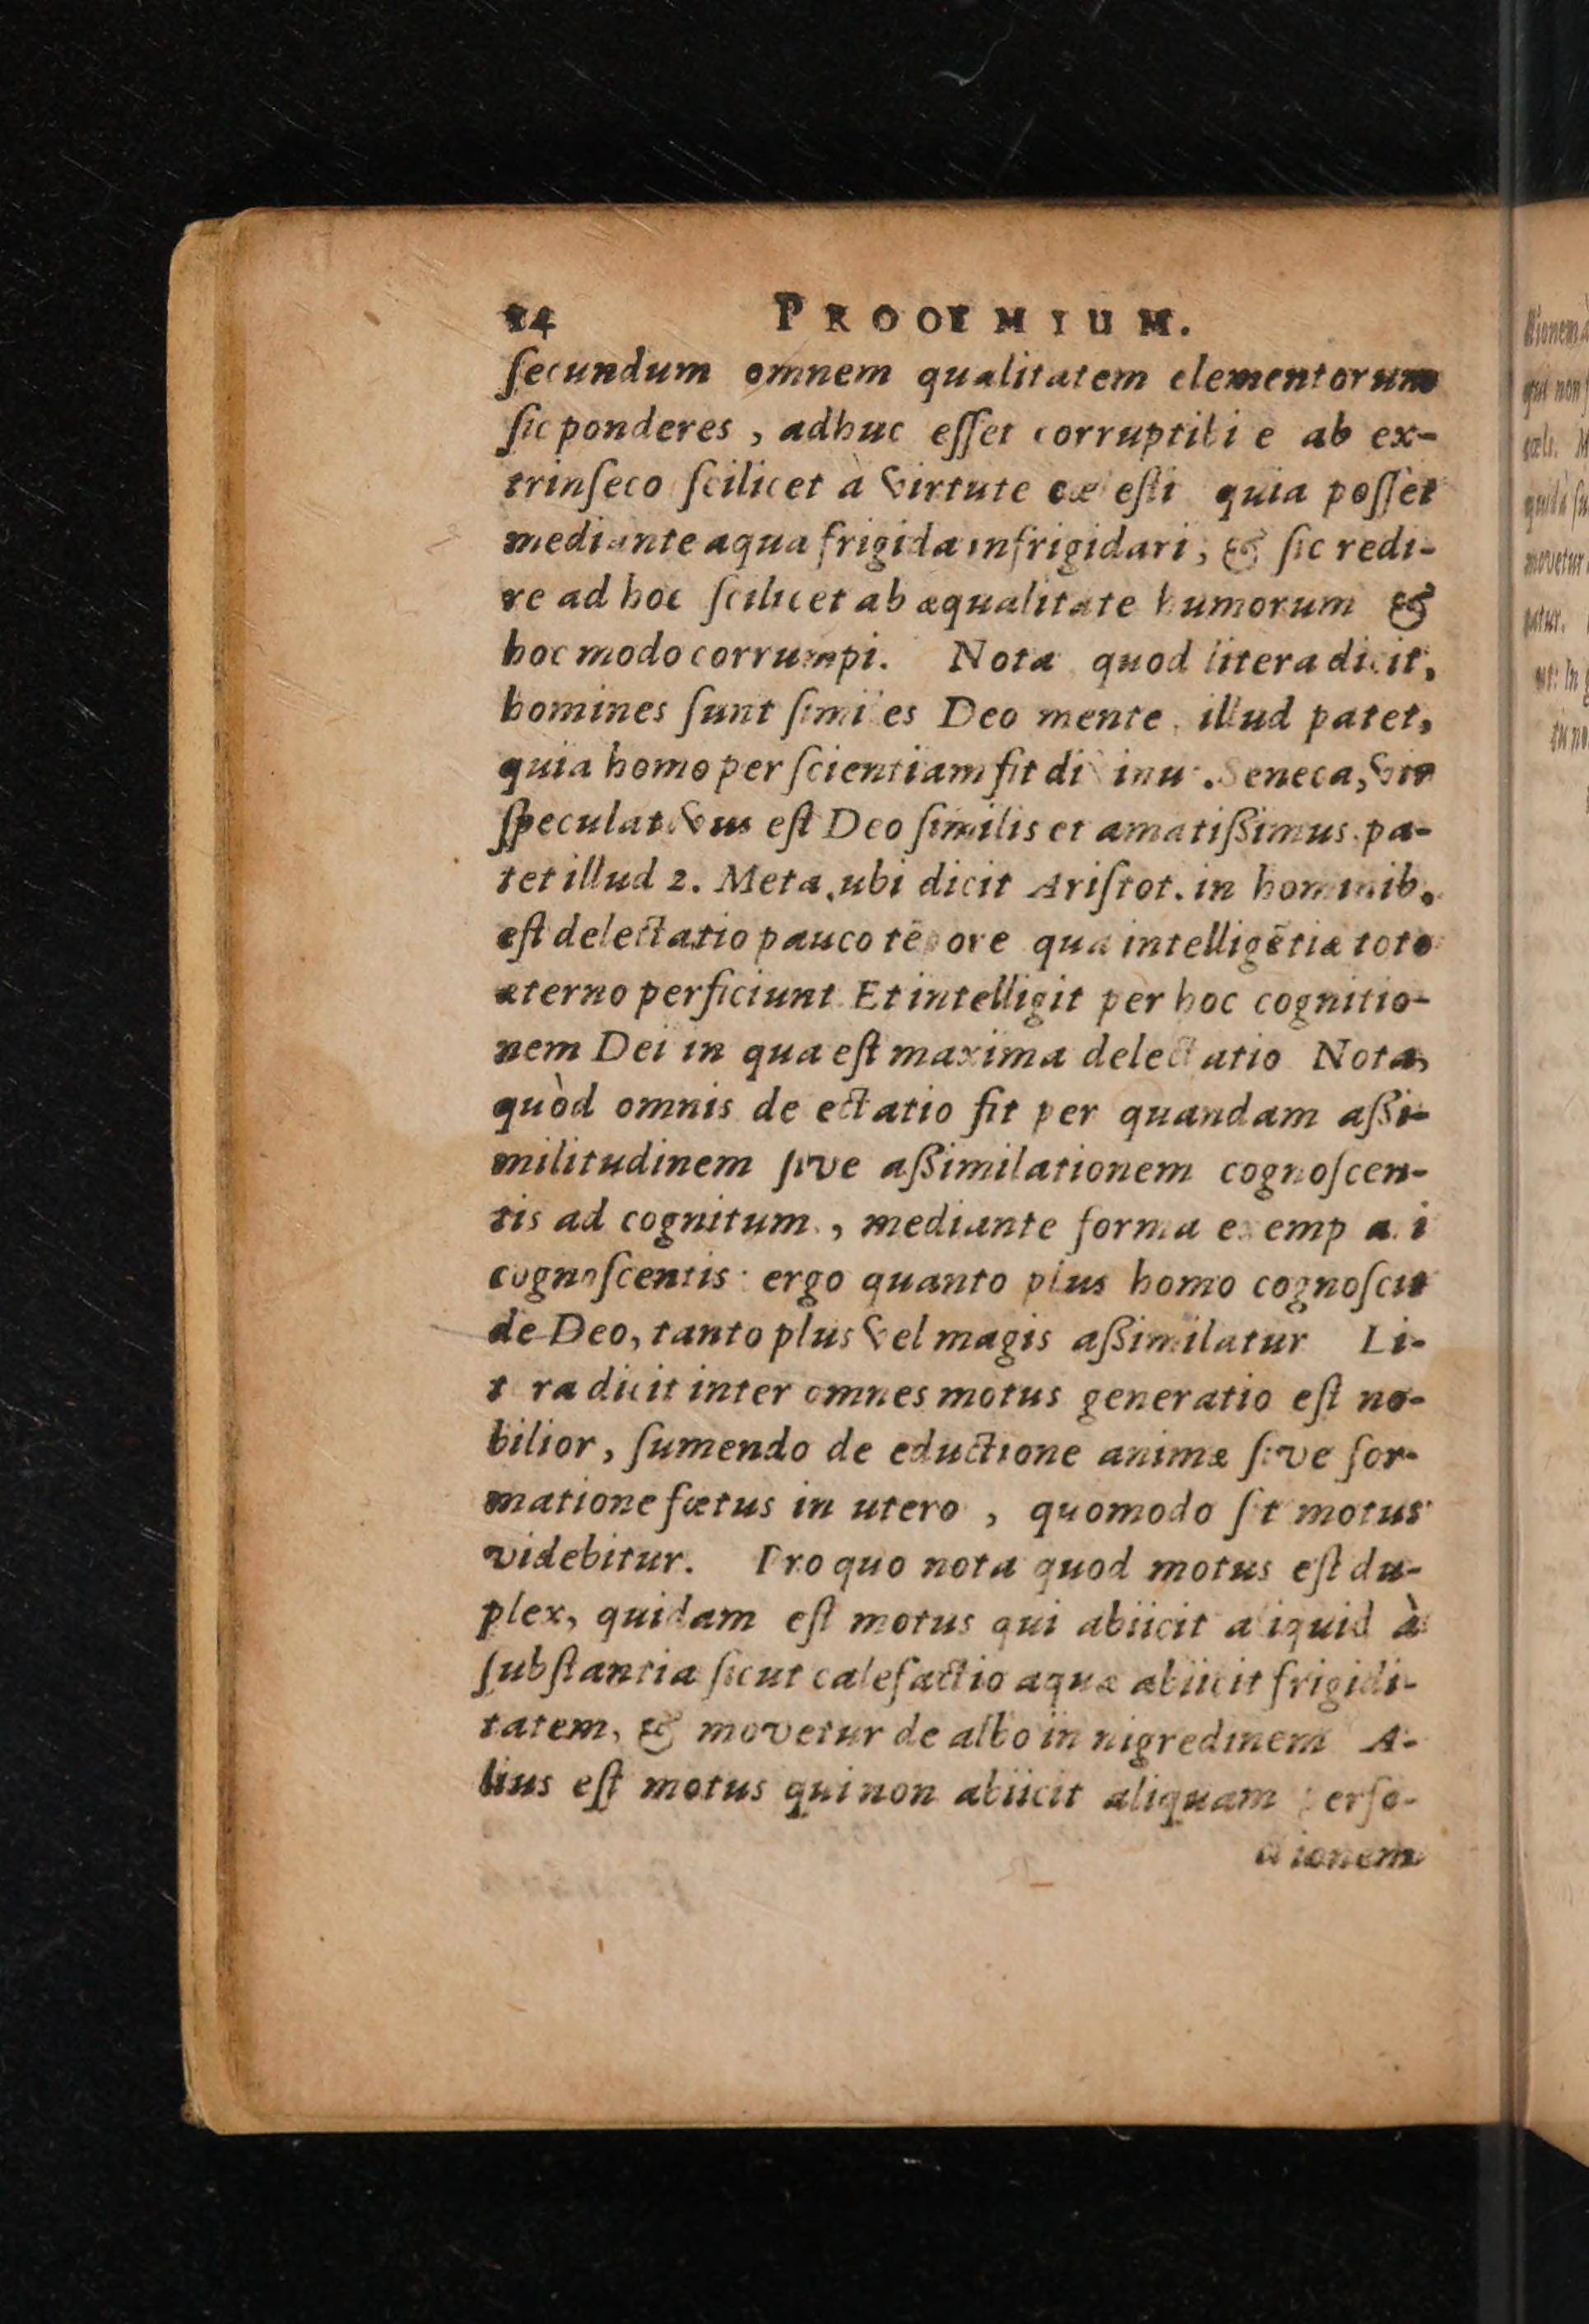 14 PROOEMIUM.
ſecundum omnem qualitatem elementorum
ſic ponderes, adhuc eſſet corruptibile ab ex-
trinſeco ſcilicet à virtute cæleſti quia poſſet
mediante aqua frigida infrigidari, & ſic redi-
re ad hoc ſcilicet ab æqualitate humorum &
hoc modo corrumpi. Nota quod litera dicit,
homines ſunt ſimiles Deo mente, illud patet,
quia homo per ſcientiam fit divinus. Seneca, vir
ſpeculativus eſt Deo ſimilis et amatiſſimus. pa-
tet illud 2. Meta. ubi dicit Ariſtot. in hominib.
eſt delectatio pauco tēpore qua intelligētiæ toto
æterno perficiunt Et intelligit per hoc cognitio-
nem Dei in qua eſt maxima delectatio Nota,
quòd omnis delectatio fit per quandam aſſi-
militudinem ſive aſſimilationem cognoſcen-
tis ad cognitum, mediante forma exemplari
cognoſcentis: ergo quanto plus homo cognoſcit
de Deo, tanto plus vel magis aſſimilatur Li-
tera dicit inter omnes motus generatio eſt no-
bilior, ſumendo de eductione animæ ſive for-
matione fœtus in utero, quomodo ſit motus
videbitur. Pro quo nota quod motus eſt du-
plex, quidam eſt motus qui abiicit aliquid à
ſubſtantia ſicut calefactio aquæ abiicit frigidi-
tatem, & movetur de albo in nigredinem A-
lius eſt motus qui non abiicit aliquam perfe-
ctionem